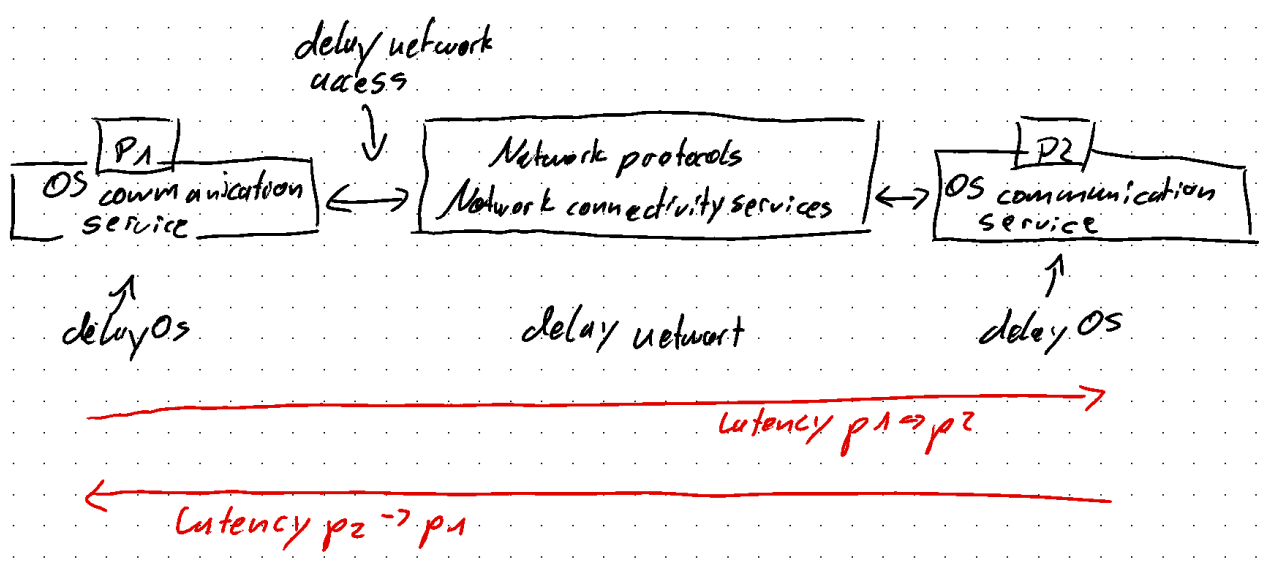 delay network
access
P1
OS communication
service
Network protocols
Network connectivity services
P2
OS communication
service
delay OS
delay network
delay OS
Latency p1 => p2
Latency p2 -> p1